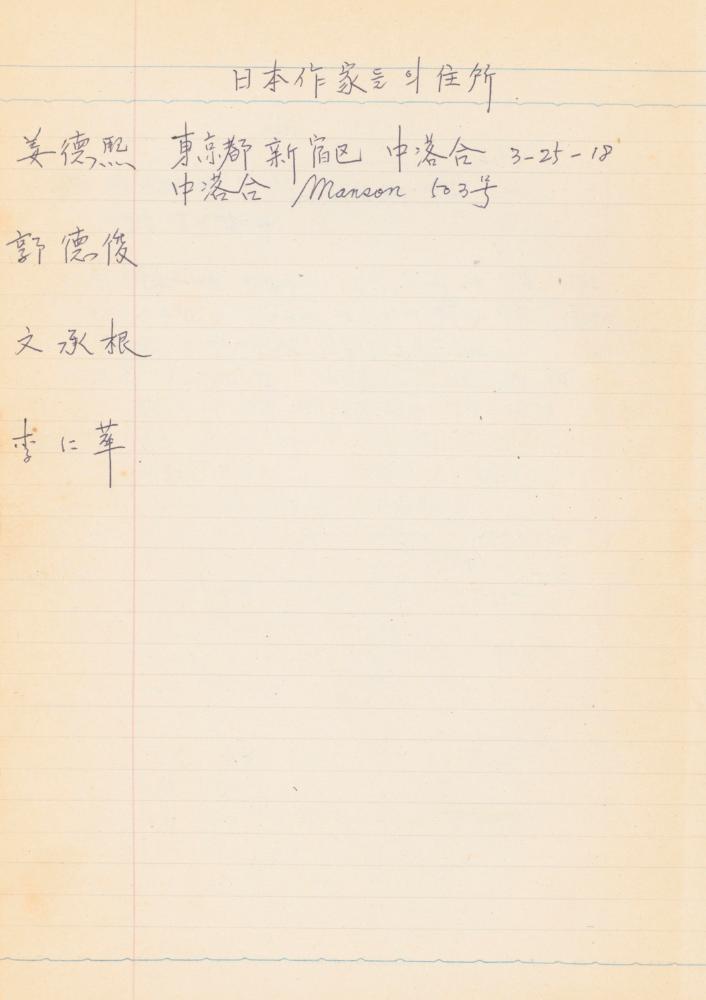 日本作家들의 住所
姜德熙 東京都 新宿区 中落合 3-25-18
中落合 Manson 503号
郭德俊
文承根
李仁華